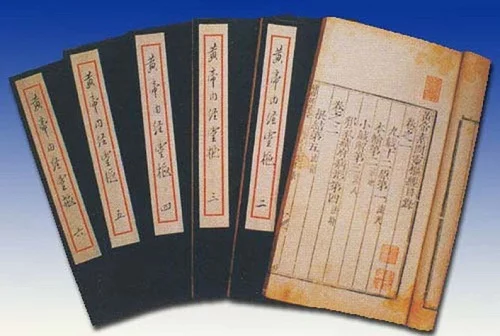 黃帝内經靈樞 六
黃帝内經靈樞 五
黃帝内經靈樞 四
黃帝内經靈樞 三
黃帝内經靈樞 二
黃帝素問靈樞經目錄
卷之一
九鍼十二原第一 法天
本輸第二 法地
小鍼解第三 法人
邪氣藏府病形第四 法時
卷之二
根結第五 法音